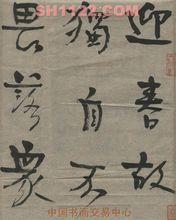 SH1122.COM
迎春故
獨自不
畏落衆
中国书画交易中心